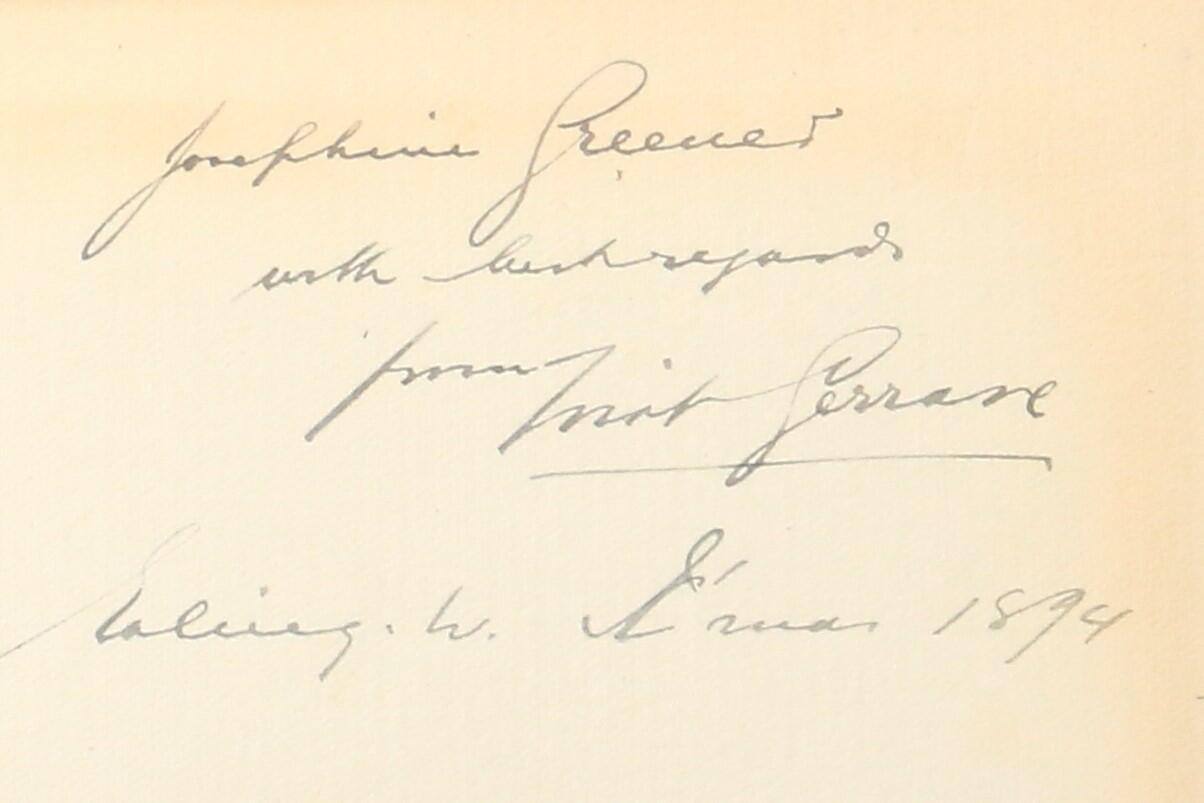 Josephine Greener
with best regards
from Gerrare
Ealing. W. X'mas 1894